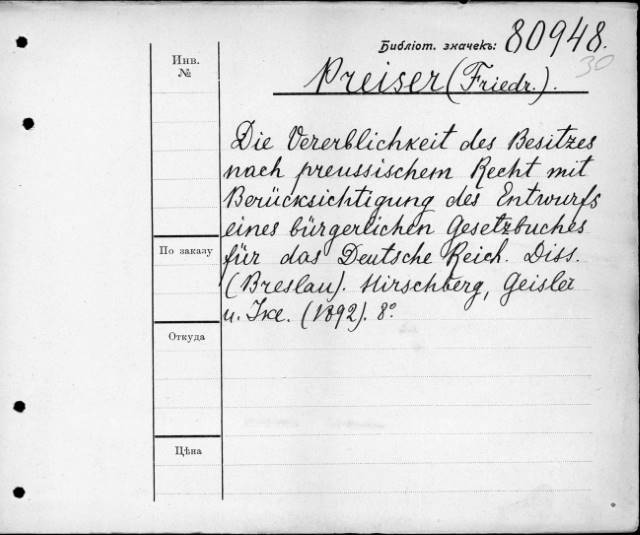 Библіот. значекъ: 80948.
30
Инв.
№
Preiser (Friedr.).
Die Vererblichkeit des Besitzes
nach preussischem Recht mit
Berücksichtigung des Entwurfs
eines bürgerlichen Gesetzbuches
По заказу
für das Deutsche Reich. Diss.
(Breslau). Hirschberg, Geisler
u. Ike. (1892). 8°
Откуда
Цѣна